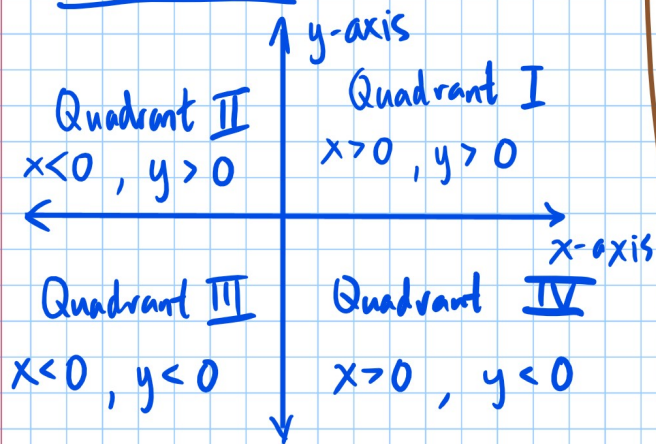 y-axis
Quadrant I
x>0 , y>0
Quadrant II
x<0 , y>0
x-axis
Quadrant III
x<0 , y<0
Quadrant IV
x>0 , y<0